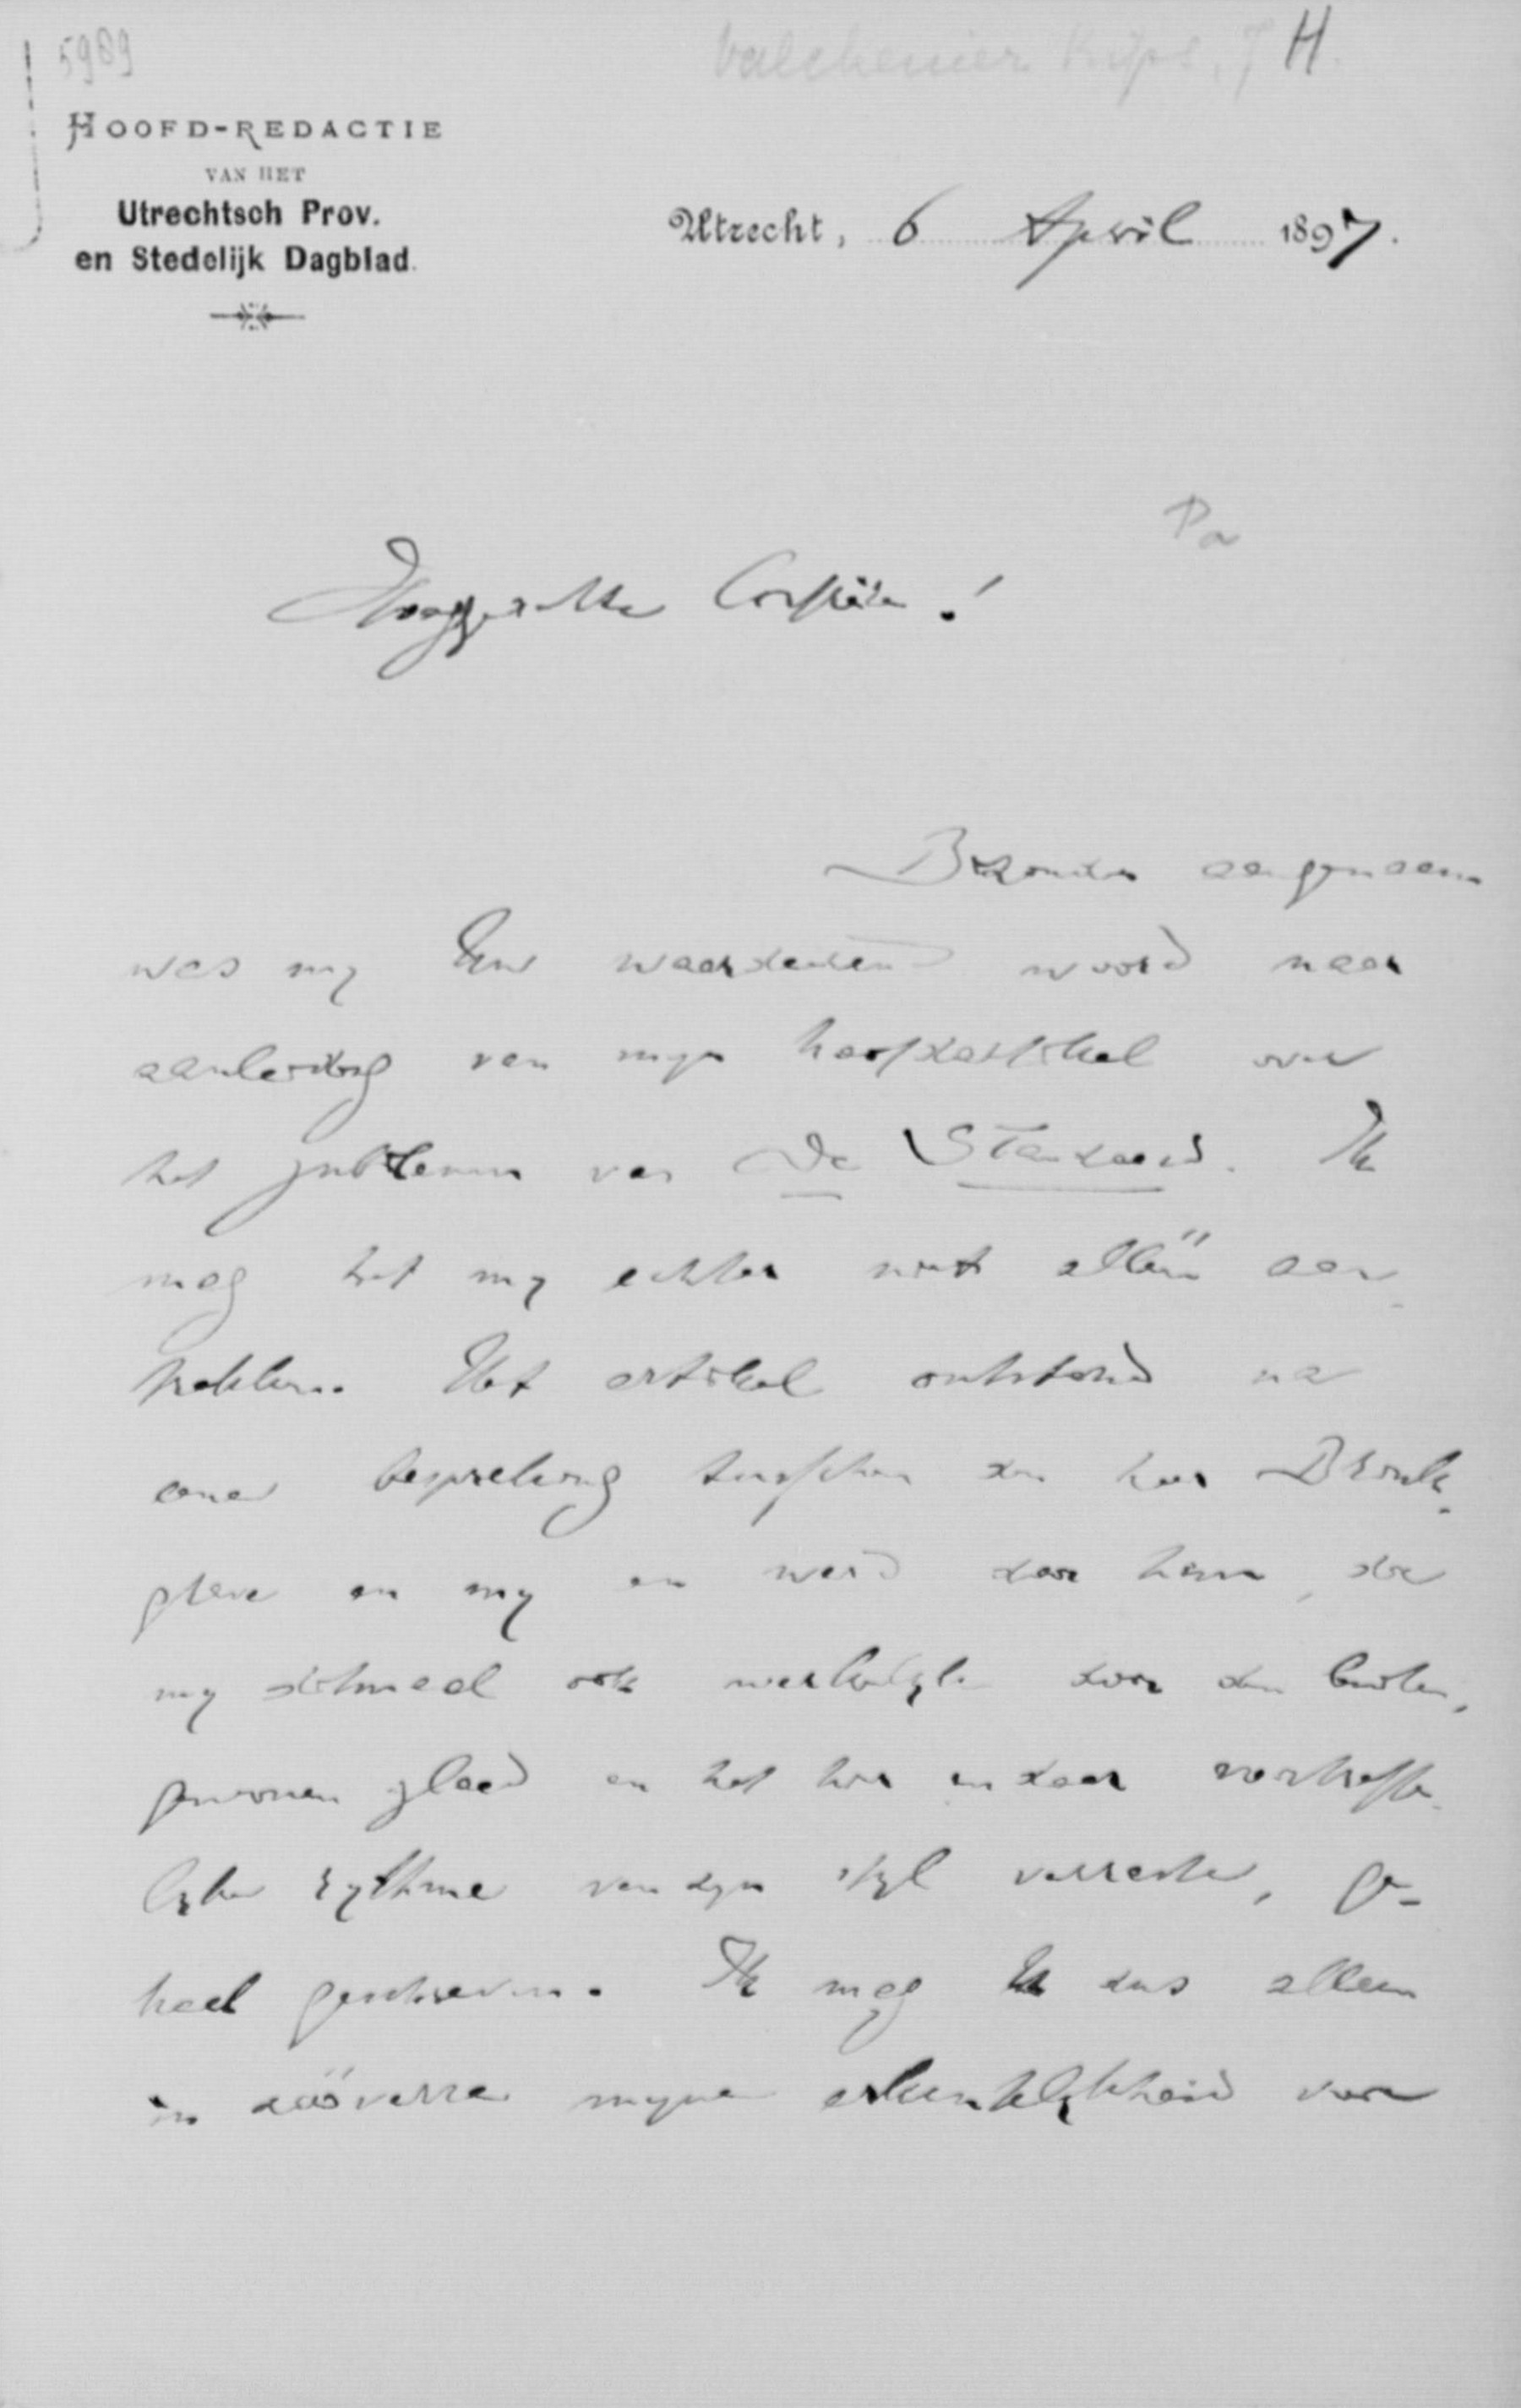 5989
Valckenier Kips, J H.
HOOFD-REDACTIE
VAN HET
Utrechtsch Prov.
en Stedelijk Dagblad.
Utrecht, 6 April 1897.
Pa
Hooggeachte
Bizonder aangenaam
was mij Uw waardeerend woord naar
aanleiding van mijn hoofdartikel over
het jubileum van De Standaard. Ik
mag het mij echter niet alléén aan-
trekken. Het artikel ontstond na
eene bespreking tusschen den heer
en mij en werd door hem, die
mij ditmaal ook werkelijk door den buiten-
gewonen gloed en het hier en daar voortreffe-
lijke rythme van zijn stijl verraste, ge-
heel geschreven. Ik mag U dus alleen
in zóóverre mijne erkentelijkheid voor